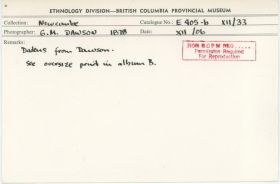 ETHNOLOGY DIVISION—BRITISH COLUMBIA PROVINCIAL MUSEUM
Collection: Newcombe Catalogue No.: E 405-b XII/33
Photographer: G.M. DAWSON 1878 Date: XII /06
Remarks:
Datens from Dawson.
See oversize print in album B.
NON BCPM NEG
Permission Required
For Reproduction